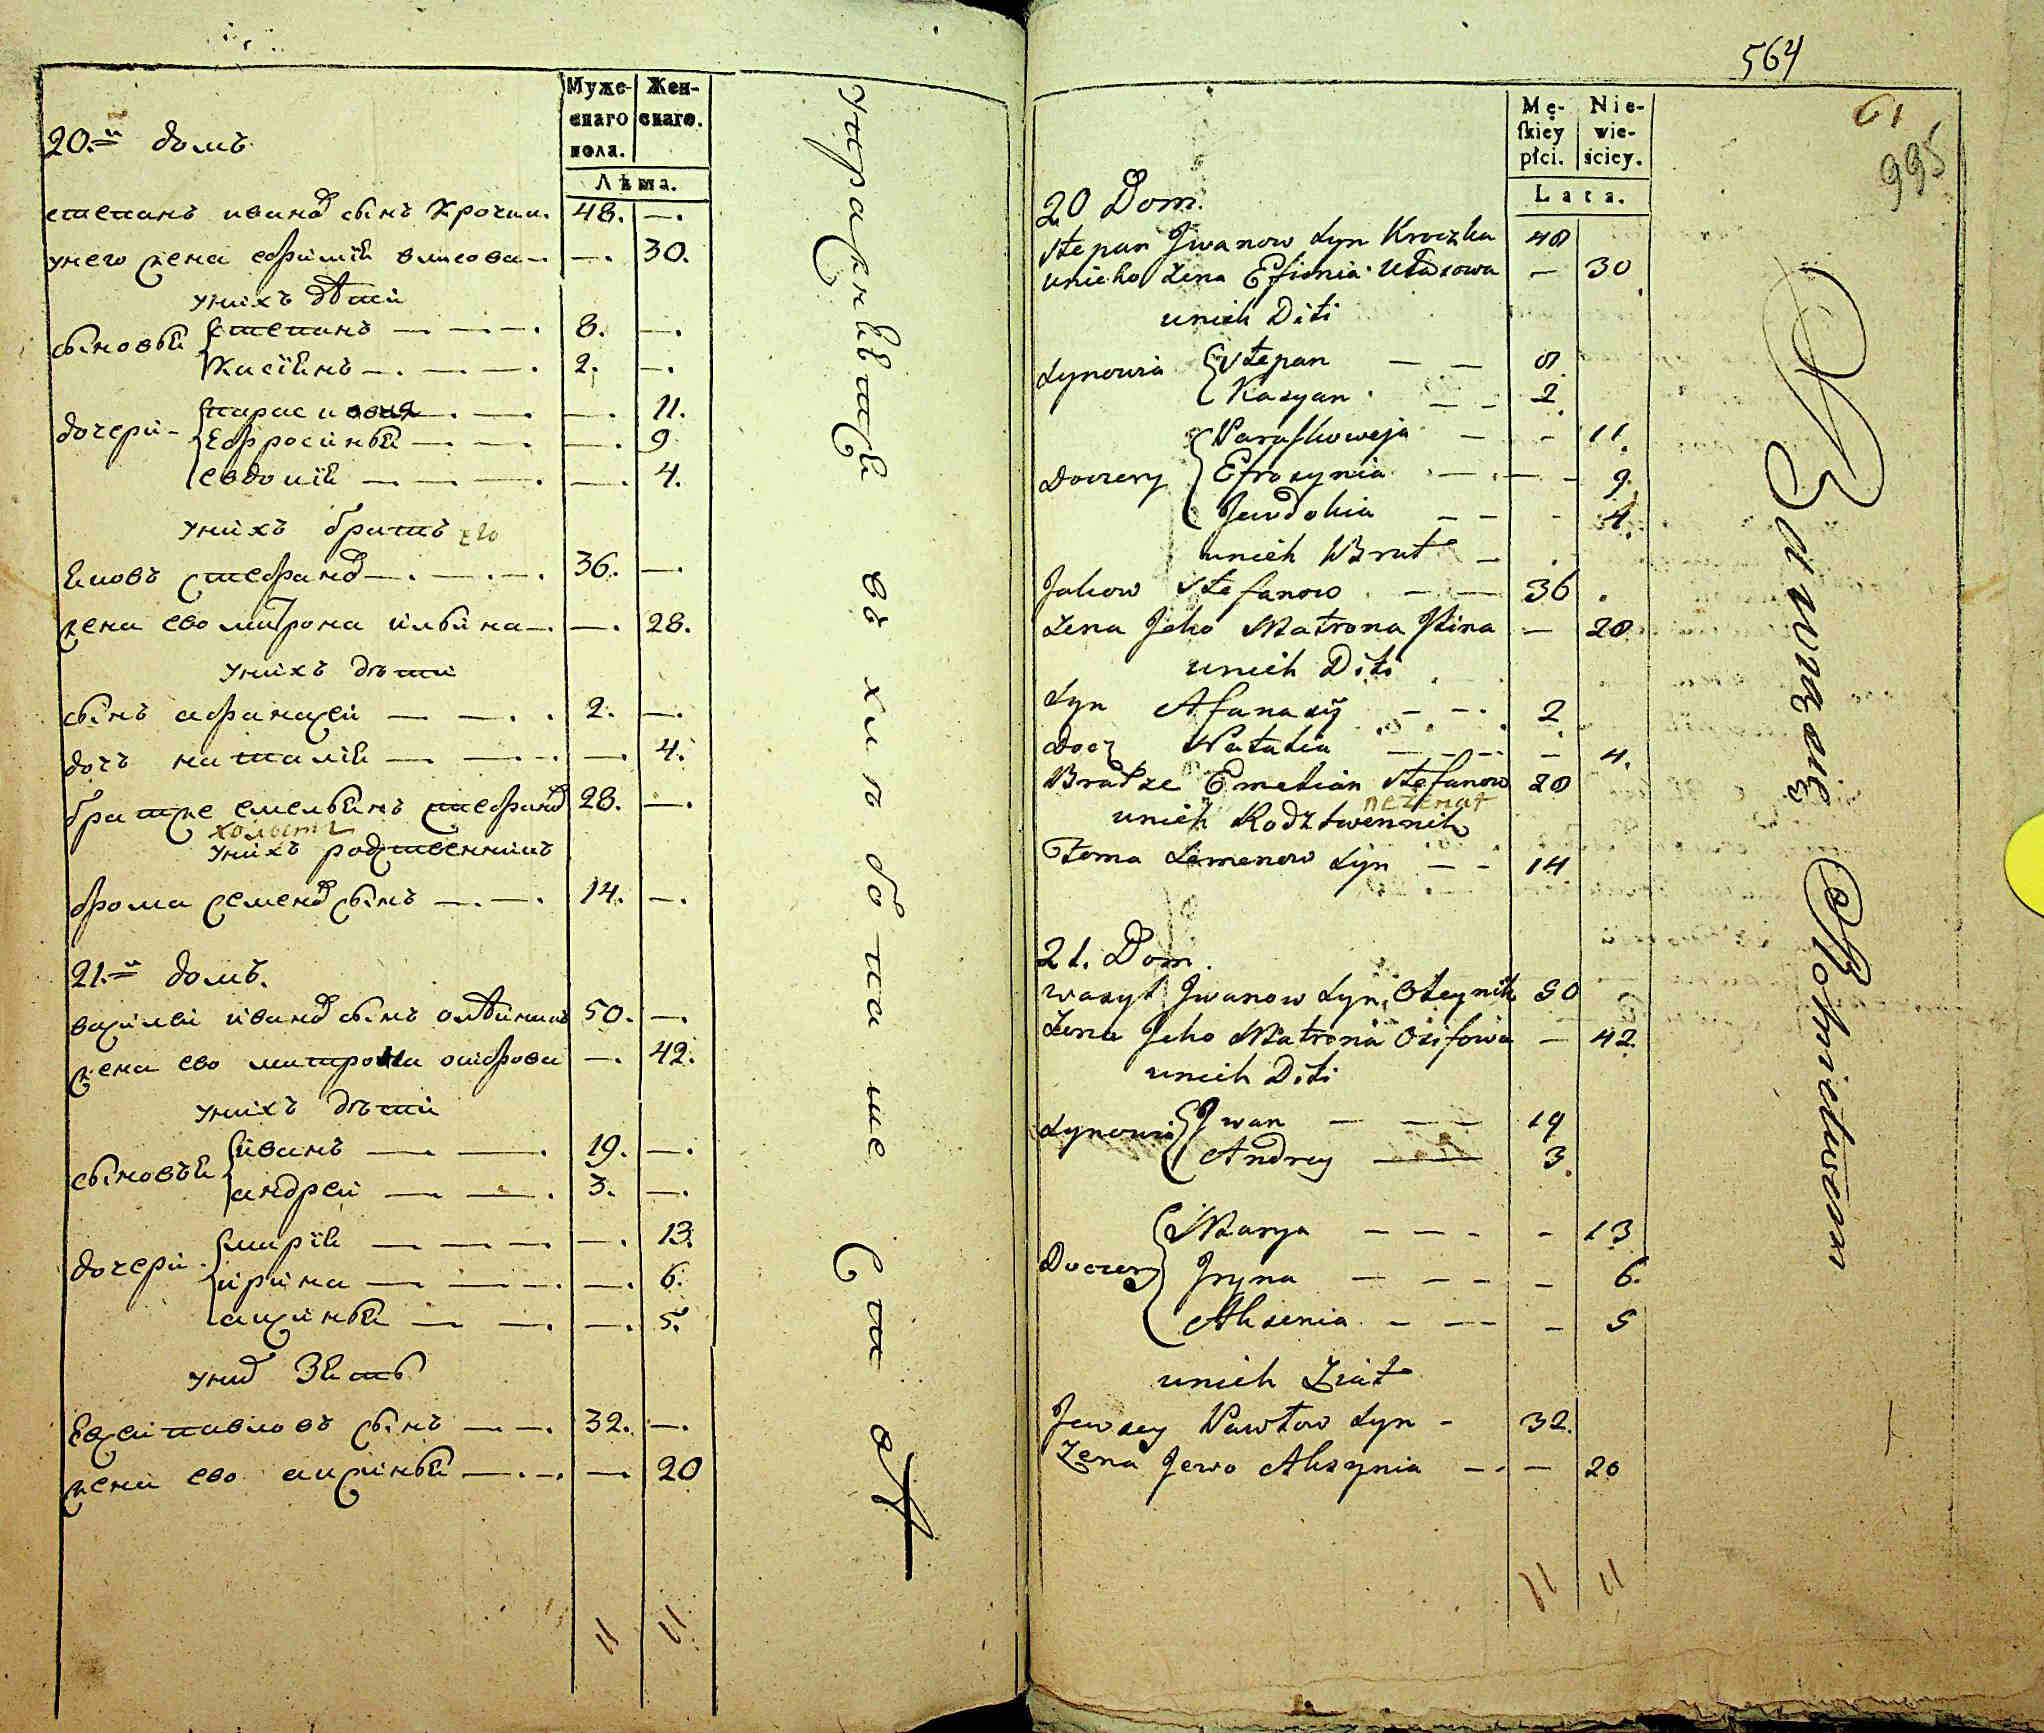 Муже-
скаго
пола.
Жен-
скаго.
Лѣта.
20.й домъ
степанъ иванов сынъ Крочка. 48. —.
унего жена ефимия власова —. —. 30.
унихъ дѣти
сыновья степанъ — — —. 8. —.
Касіянъ —. — —. 2. —.
дочери — —. —. 11.
Ефросинья —. — —. 9
евдокія — — —. —. 4.
унихъ братъ его
Яковъ стефанов —. —. —. 36. —.
жена ево матрона ильина —. —. 28.
унихъ дѣти
сынъ афанасей — —. . 2. —.
дочъ наталія — —. —. 4.
братже емельянъ стефанов 28. —.
холостъ
унихъ родственникъ
фома семенов сынъ —. —. 14. —.
21.й домъ.
василей иванов сынъ олѣйникъ 50. —.
жена ево матрона осифова —. 42.
унихъ дѣти
сыновья иванъ — —. 19. —.
андрей — —. 3. —.
дочери марія — — — —. 13.
ирина — — —. —. 6.
аксинья — —. —. 5.
уних Зять
Евсей павловъ сынъ — —. 32. —.
жена ево аксинья —. —. — 20
11 11
564
61
995
Mę-
skiey
płci.
Nie-
wie-
ściey.
Lata.
20 Dom.
Stepan Jwanow Syn Kroczka 48
unieho Żena Efimia Własowa — 30
unich Diti
Synowia Stepan — — 8.
Kasyan — — 2.
Doczery Paraskoweja — - 11.
Efrosynia — — - 9.
Jewdokia — — - 4.
unich Brat —
Jakow Stefanow — — 36 .
Żena Jeho Matrona Ilina — 28
unich Diti
Syn Afanasÿ — —. 2.
Docz Natalia — — — - 4.
Bratże Emelian Stefanow 28
nezenat
unich Rodztwennik
Foma Semenow Syn — - 14
21. Dom.
Wasyl Jwanow Syn Oleynik 50
Żena Jeho Matrona Osifowa — 42.
unich Diti
Synowia Jwan — — — 19
Andrey — 3.
Doczery Marya — — — - - 13
Jryna — — — - 6.
Aksenia — — - 5
unich Ziat
Jewsey Pawłow Syn - 32.
Żena Jewo Aksynia — - — 20
11 11